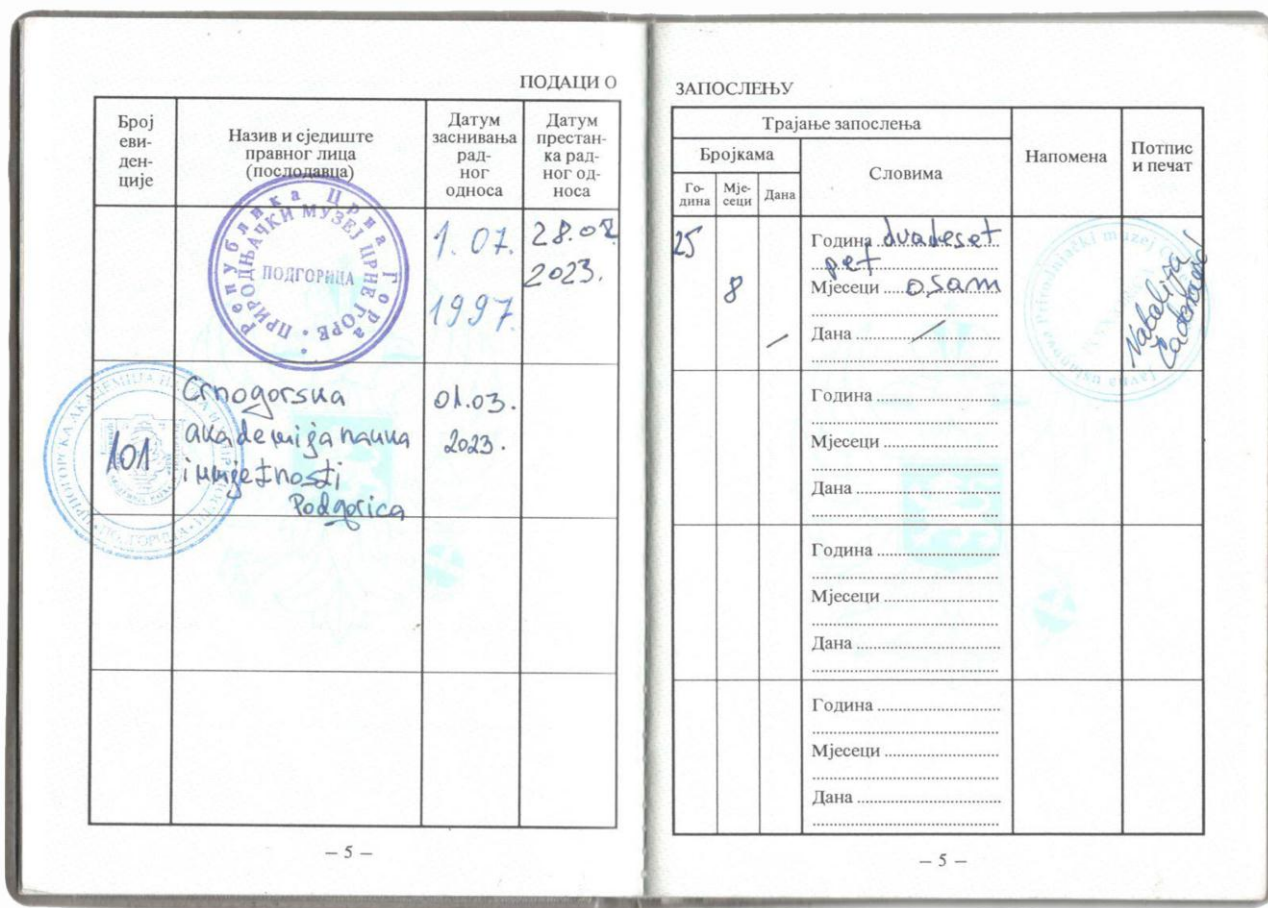 ПОДАЦИ О
Број
еви-
ден-
ције
Назив и сједиште
правног лица
(послодавца)
Датум
заснивања
рад-
ног
односа
Датум
престан-
ка рад-
ног од-
носа
Република Црна Гора
ПРИРОДЊАЧКИ МУЗЕЈ ЦРНЕ ГОРЕ
ПОДГОРИЦА
1.07.
1997.
28.02
2023.
101
Crnogorska
akademija nauka
i umjetnosti
Podgorica
01.03.
2023.
– 5 –
ЗАПОСЛЕЊУ
Трајање запослења
Бројкама
Го-
дина
Мје-
сеци
Дана
Словима
Напомена
Потпис
и печат
25
8
–
Година dvadeset
pet
Мјесеци osam
Дана –
Natalija
Година
Мјесеци
Дана
Година
Мјесеци
Дана
Година
Мјесеци
Дана
– 5 –